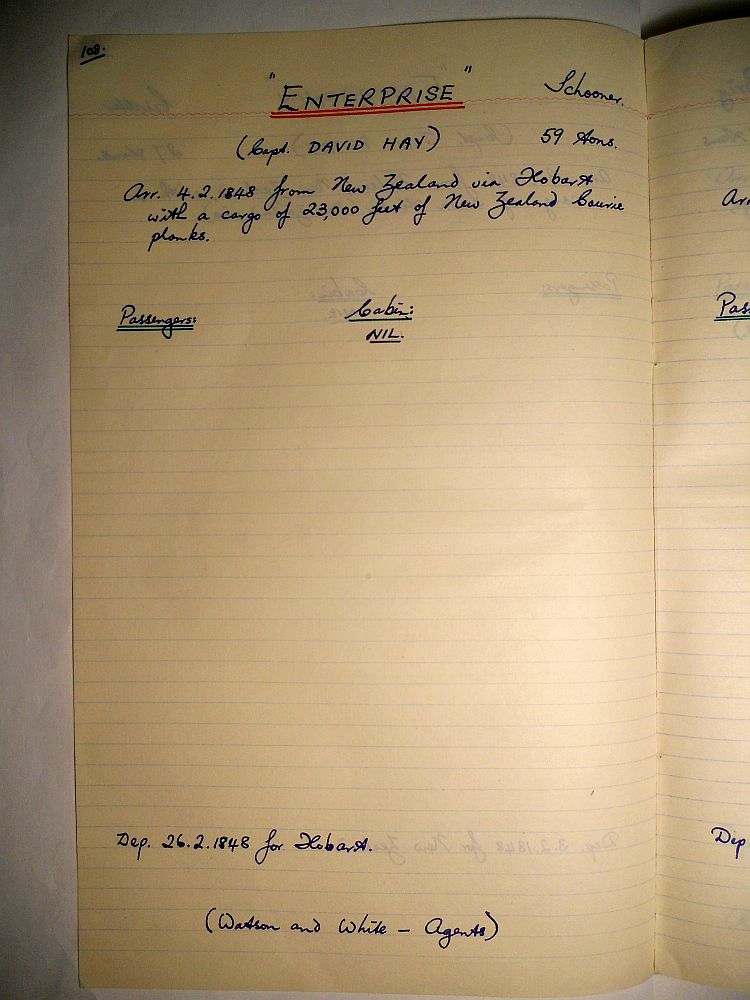 108.
"ENTERPRISE" Schooner.
(Capt. DAVID HAY) 59 tons.
Arr. 4.2.1848 from New Zealand via Hobart
with a cargo of 23,000 feet of New Zealand Courie
planks.
Passengers: Cabin:
NIL.
Dep. 26.2.1848 for Hobart.
(Watson and White - Agents)
Arr
Pas
Dep